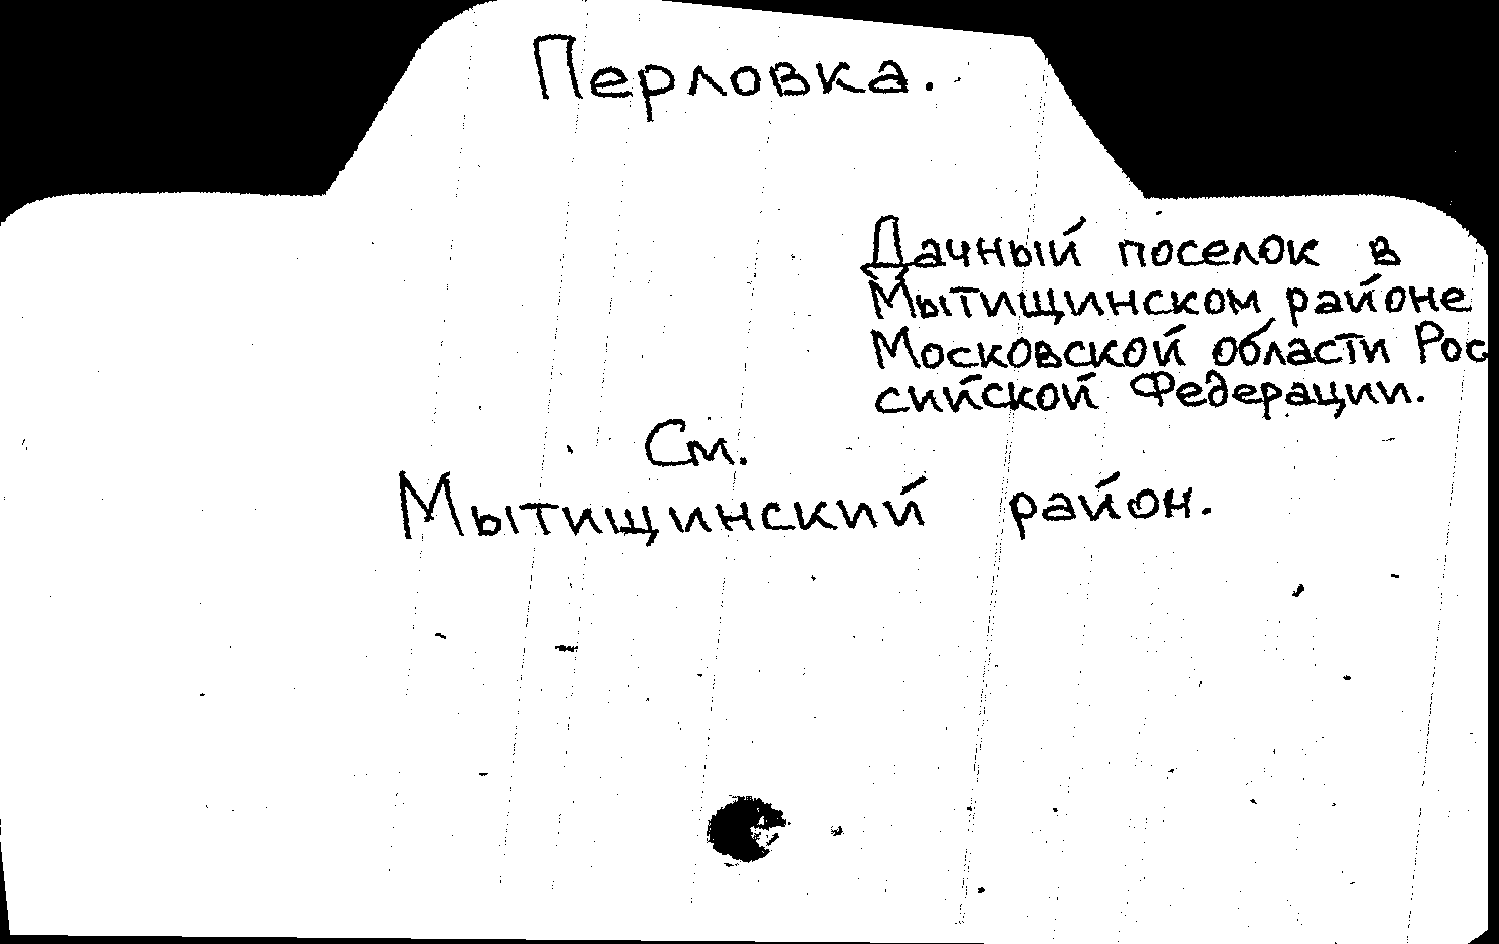 Перловка.
Дачный поселок в
Мытищинском районе
Московской области Рос
сийской Федерации.
См.
Мытищинский район.